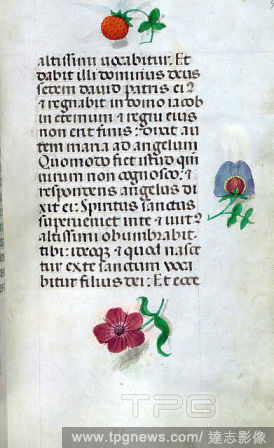 altissimi vocabitur. Et
dabit illi dominus deus
sedem david patris ei9
& regnabit in domo iacob
in eternum & regni eius
non erit finis: dixit au
tem maria ad angelum
Quomodo fiet istud qm
virum non cognosco: &
respondens angelus di
xit ei: Spiritus sanctus
superveniet in te & virt9
altissimi obumbrabit
tibi: ideoq; & quod nasce
tur ex te sanctum voca
bitur filius dei: Et ecce
TPG
www.tpgnews.com/ 達志影像